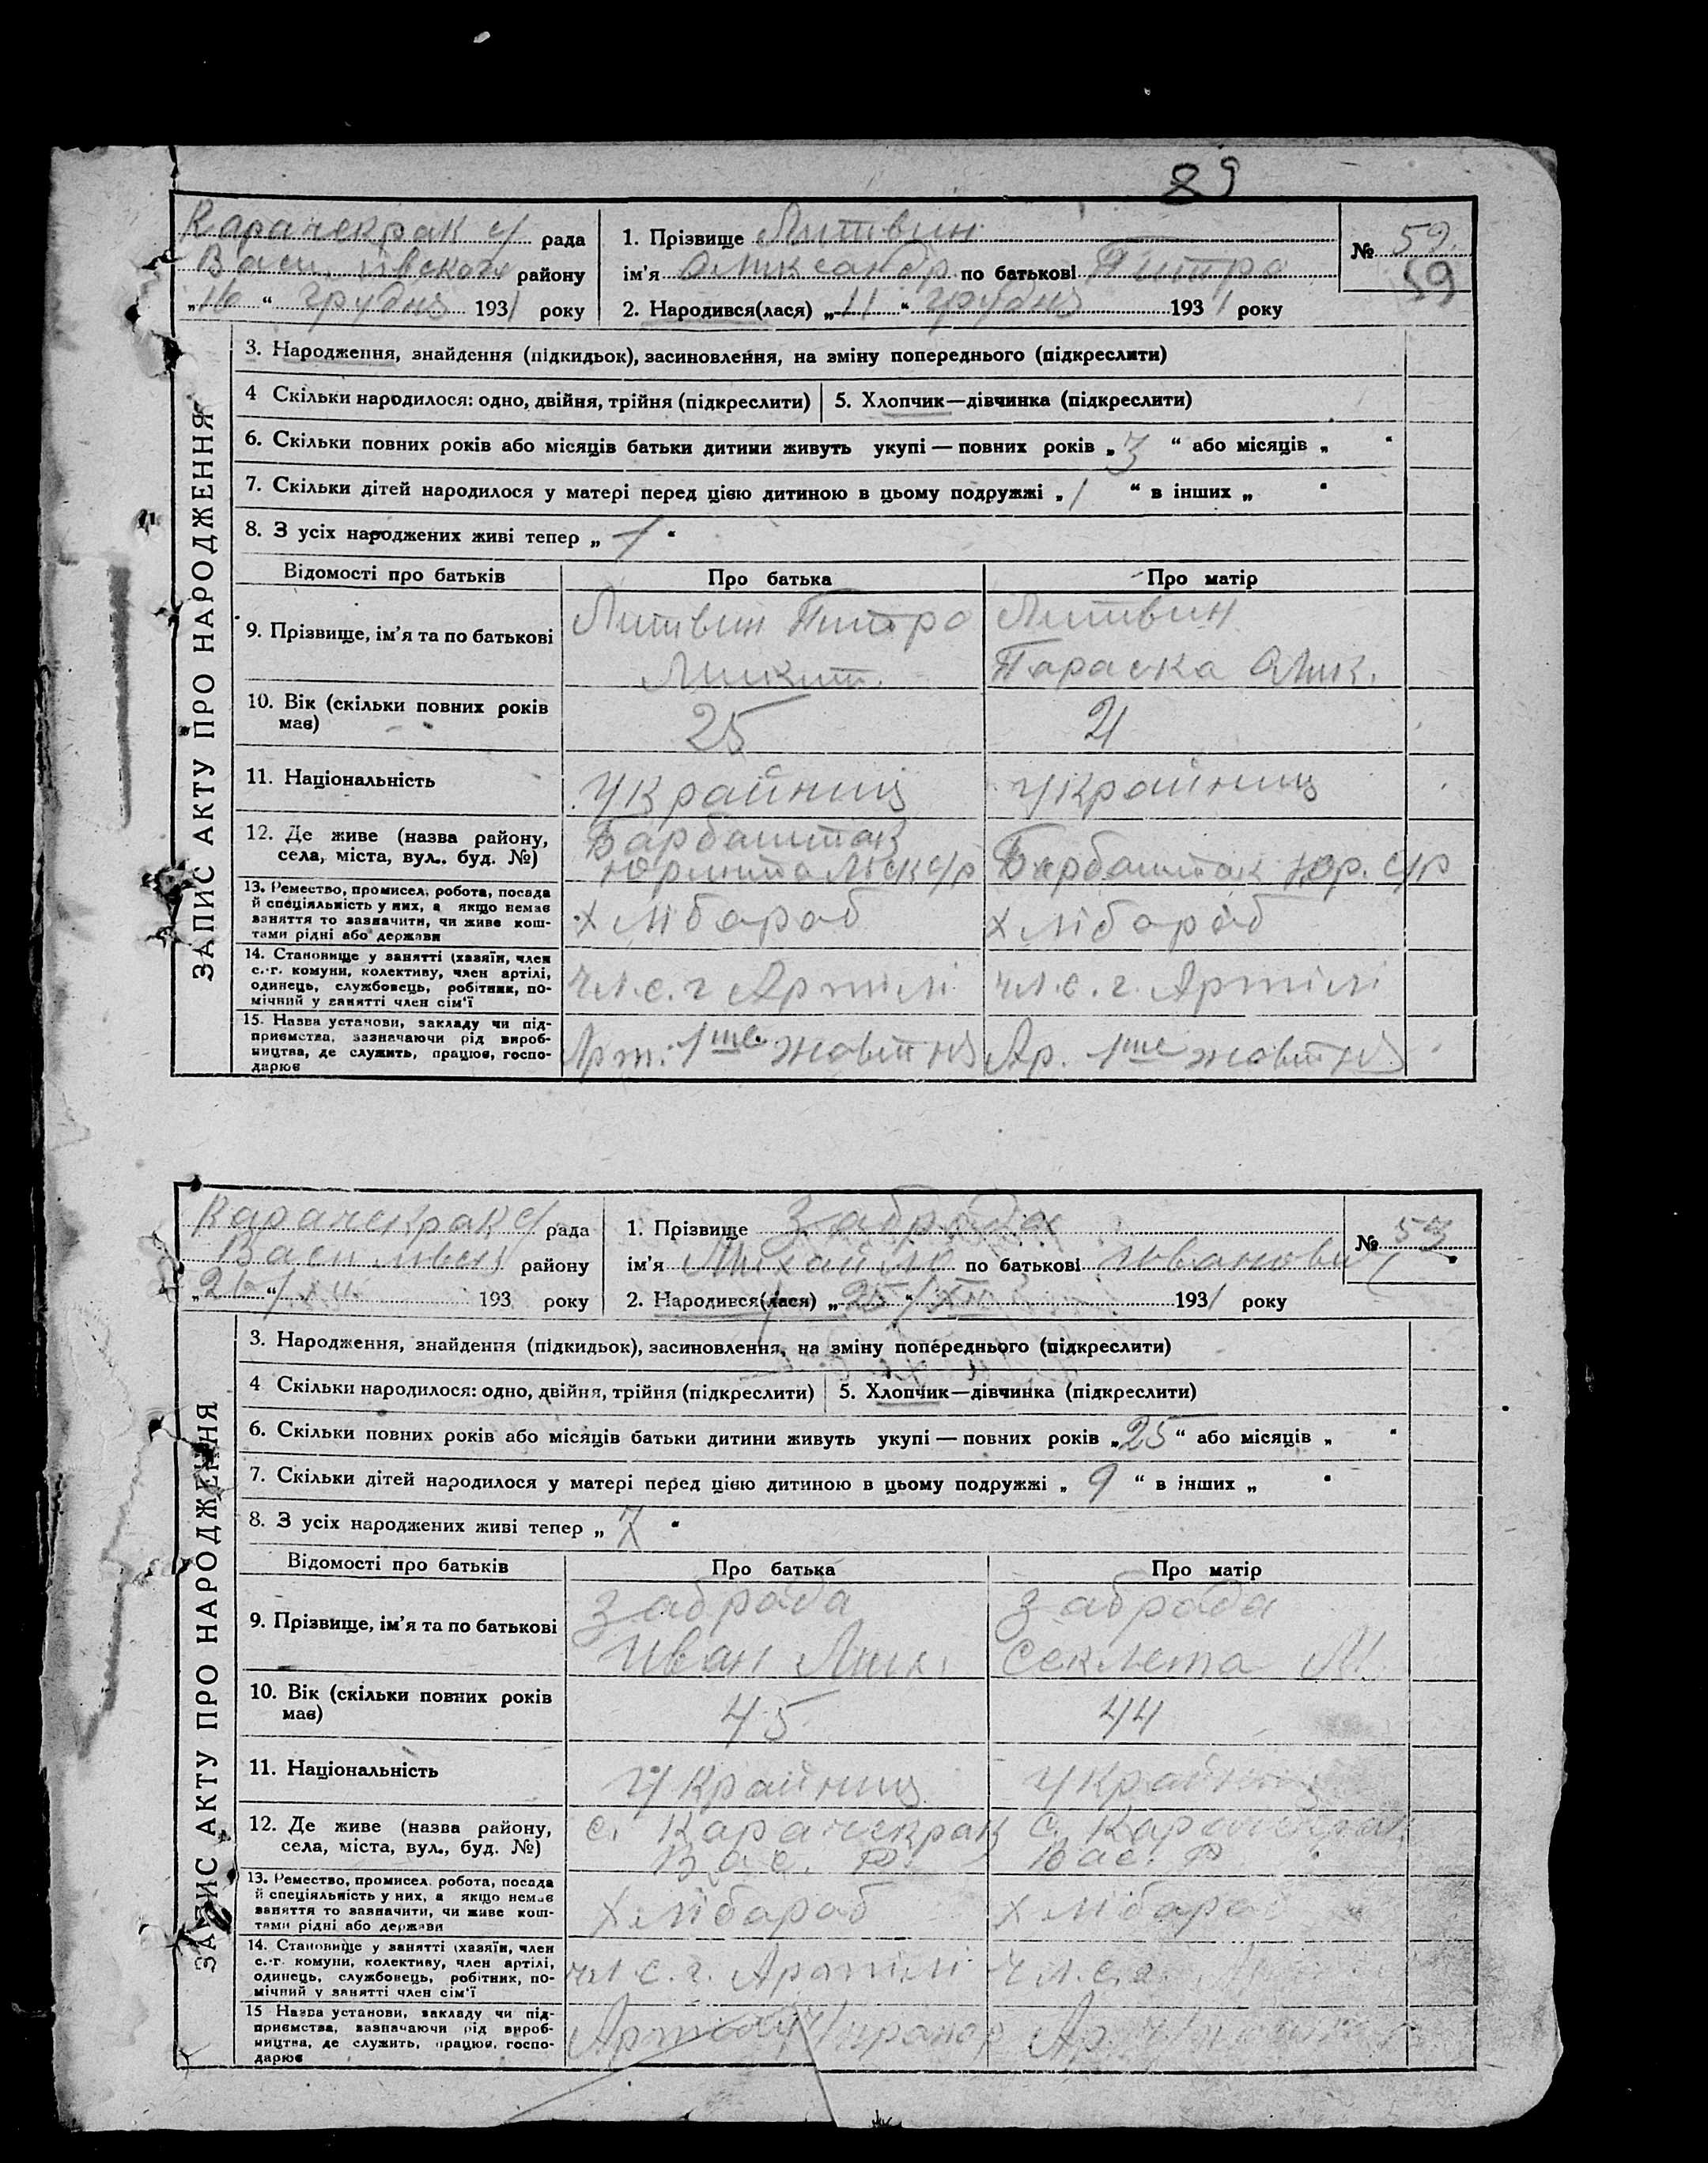 89
Карачекрак с/ рада
району
„16“ грудня 1931 року
1. Прізвище Литвин
ім'я Оликсандр по батькові Питро
2. Народився(лася) „11“ грудня 1931 року
№ 59
59
ЗАПИС АКТУ ПРО НАРОДЖЕННЯ
3. Народження, знайдення (підкидьок), засиновлення, на зміну попереднього (підкреслити)
4 Скільки народилося: одно, двійня, трійня (підкреслити)
5. Хлопчик—дівчинка (підкреслити)
6. Скільки повних років або місяців батьки дитини живуть укупі — повних років „3“ або місяців „ “
7. Скільки дітей народилося у матері перед цією дитиною в цьому подружжі „1“ в інших „ “
8. З усіх народжених живі тепер „1“
Відомості про батьків
Про батька
Про матір
9. Прізвище, ім'я та по батькові
Литвин Питро
Микит.
Литвин
Параска Олик.
10. Вік (скільки повних років
має)
25
21
11. Національність
Україниц
Україниц
12. Де живе (назва району,
села, міста, вул., буд. №)
Барбаштак
с/р
Барбаштак Юр. с/р
13. Ремество, промисел, робота, посада
й спеціяльність у них, а якщо немає
заняття то зазначити, чи живе кош-
тами рідні або держави
хлібараб
хлібараб
14. Становище у занятті (хазяїн, член
с.-г. комуни, колективу, член артілі,
одинець, службовець, робітник, по-
мічний у занятті член сім'ї
чл. с. г. Артілі
чл. с. г. Артілі
15. Назва установи, закладу чи під-
приємства, зазначаючи рід вироб-
ництва, де служить, працює, госпо-
дарює
Арт. 1ше жовтня
Ар. 1ше жовтня
Карачекрак с/ рада
району
„26/XII“ 193 року
1. Прізвище Заброда
ім'я Михайло по батькові
2. Народився(лася) „25/XII“ 1931 року
№ 53
ЗАПИС АКТУ ПРО НАРОДЖЕННЯ
3. Народження, знайдення (підкидьок), засиновлення, на зміну попереднього (підкреслити)
4 Скільки народилося: одно, двійня, трійня (підкреслити)
5. Хлопчик—дівчинка (підкреслити)
6. Скільки повних років або місяців батьки дитини живуть укупі — повних років „25“ або місяців „ “
7. Скільки дітей народилося у матері перед цією дитиною в цьому подружжі „9“ в інших „ “
8. З усіх народжених живі тепер „7“
Відомості про батьків
Про батька
Про матір
9. Прізвище, ім'я та по батькові
Заброда
Иван
Заброда
Секлета М.
10. Вік (скільки повних років
має)
45
44
11. Національність
Україниц
Україниц
12. Де живе (назва району,
села, міста, вул., буд. №)
с. Карачекрак
Вас. Р.
с. Карачекрак
Вас. Р
13. Ремество, промисел, робота, посада
й спеціяльність у них, а якщо немає
заняття то зазначити, чи живе кош-
тами рідні або держави
хлібараб
хлібара
14. Становище у занятті (хазяїн, член
с.-г. комуни, колективу, член артілі,
одинець, службовець, робітник, по-
мічний у занятті член сім'ї
чл. с. г. Артилі
чл. с.
15 Назва установи, закладу чи під-
приємства, зазначаючи рід вироб-
ництва, де служить, працює, госпо-
дарює
Ар.